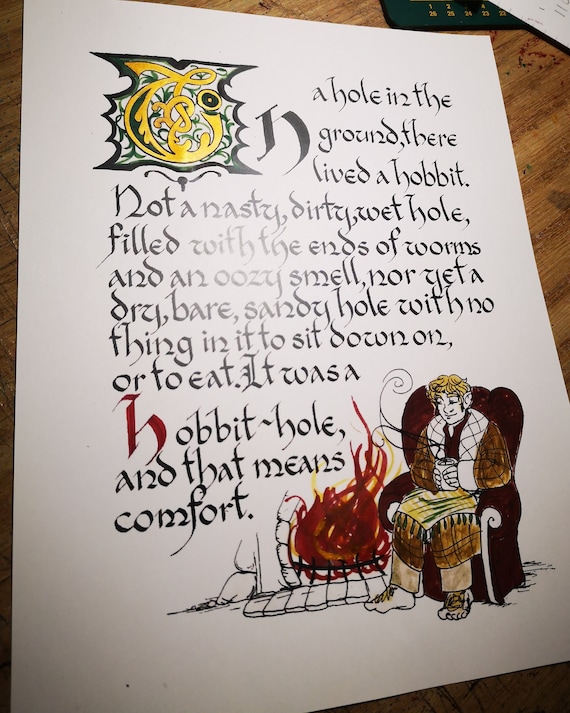 In a hole in the
ground, there
lived a hobbit.
Not a nasty, dirty, wet hole,
filled with the ends of worms
and an oozy smell, nor yet a
dry, bare, sandy hole with no
thing in it to sit down on,
or to eat. It was a
hobbit~hole,
and that means
comfort.